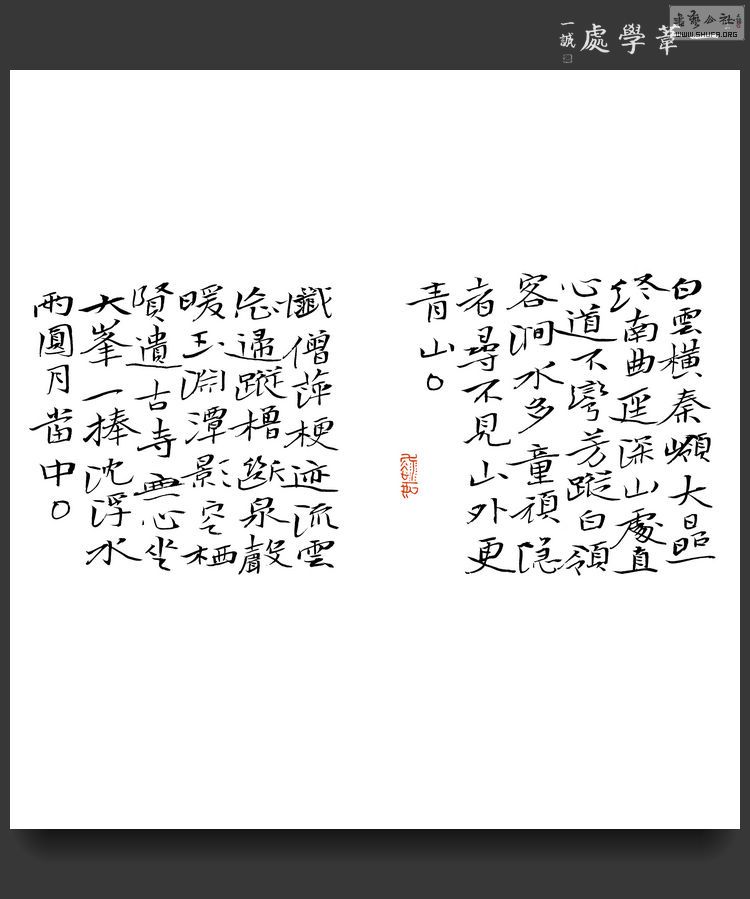 書藝公社
WWW.SHUFA.ORG
一葦學處
一誠
白雲橫秦嶺大
終南曲逕深山處直
心道不彎芳蹤白領
客澗水多童顏隱
者尋不見山外更
青山○
懺僧萍梗迹流雲
歸蹤櫓斷泉聲
暖玉淵潭影空栖
賢遺古寺無心坐
大峯一捧沈浮水
兩圓月當中○